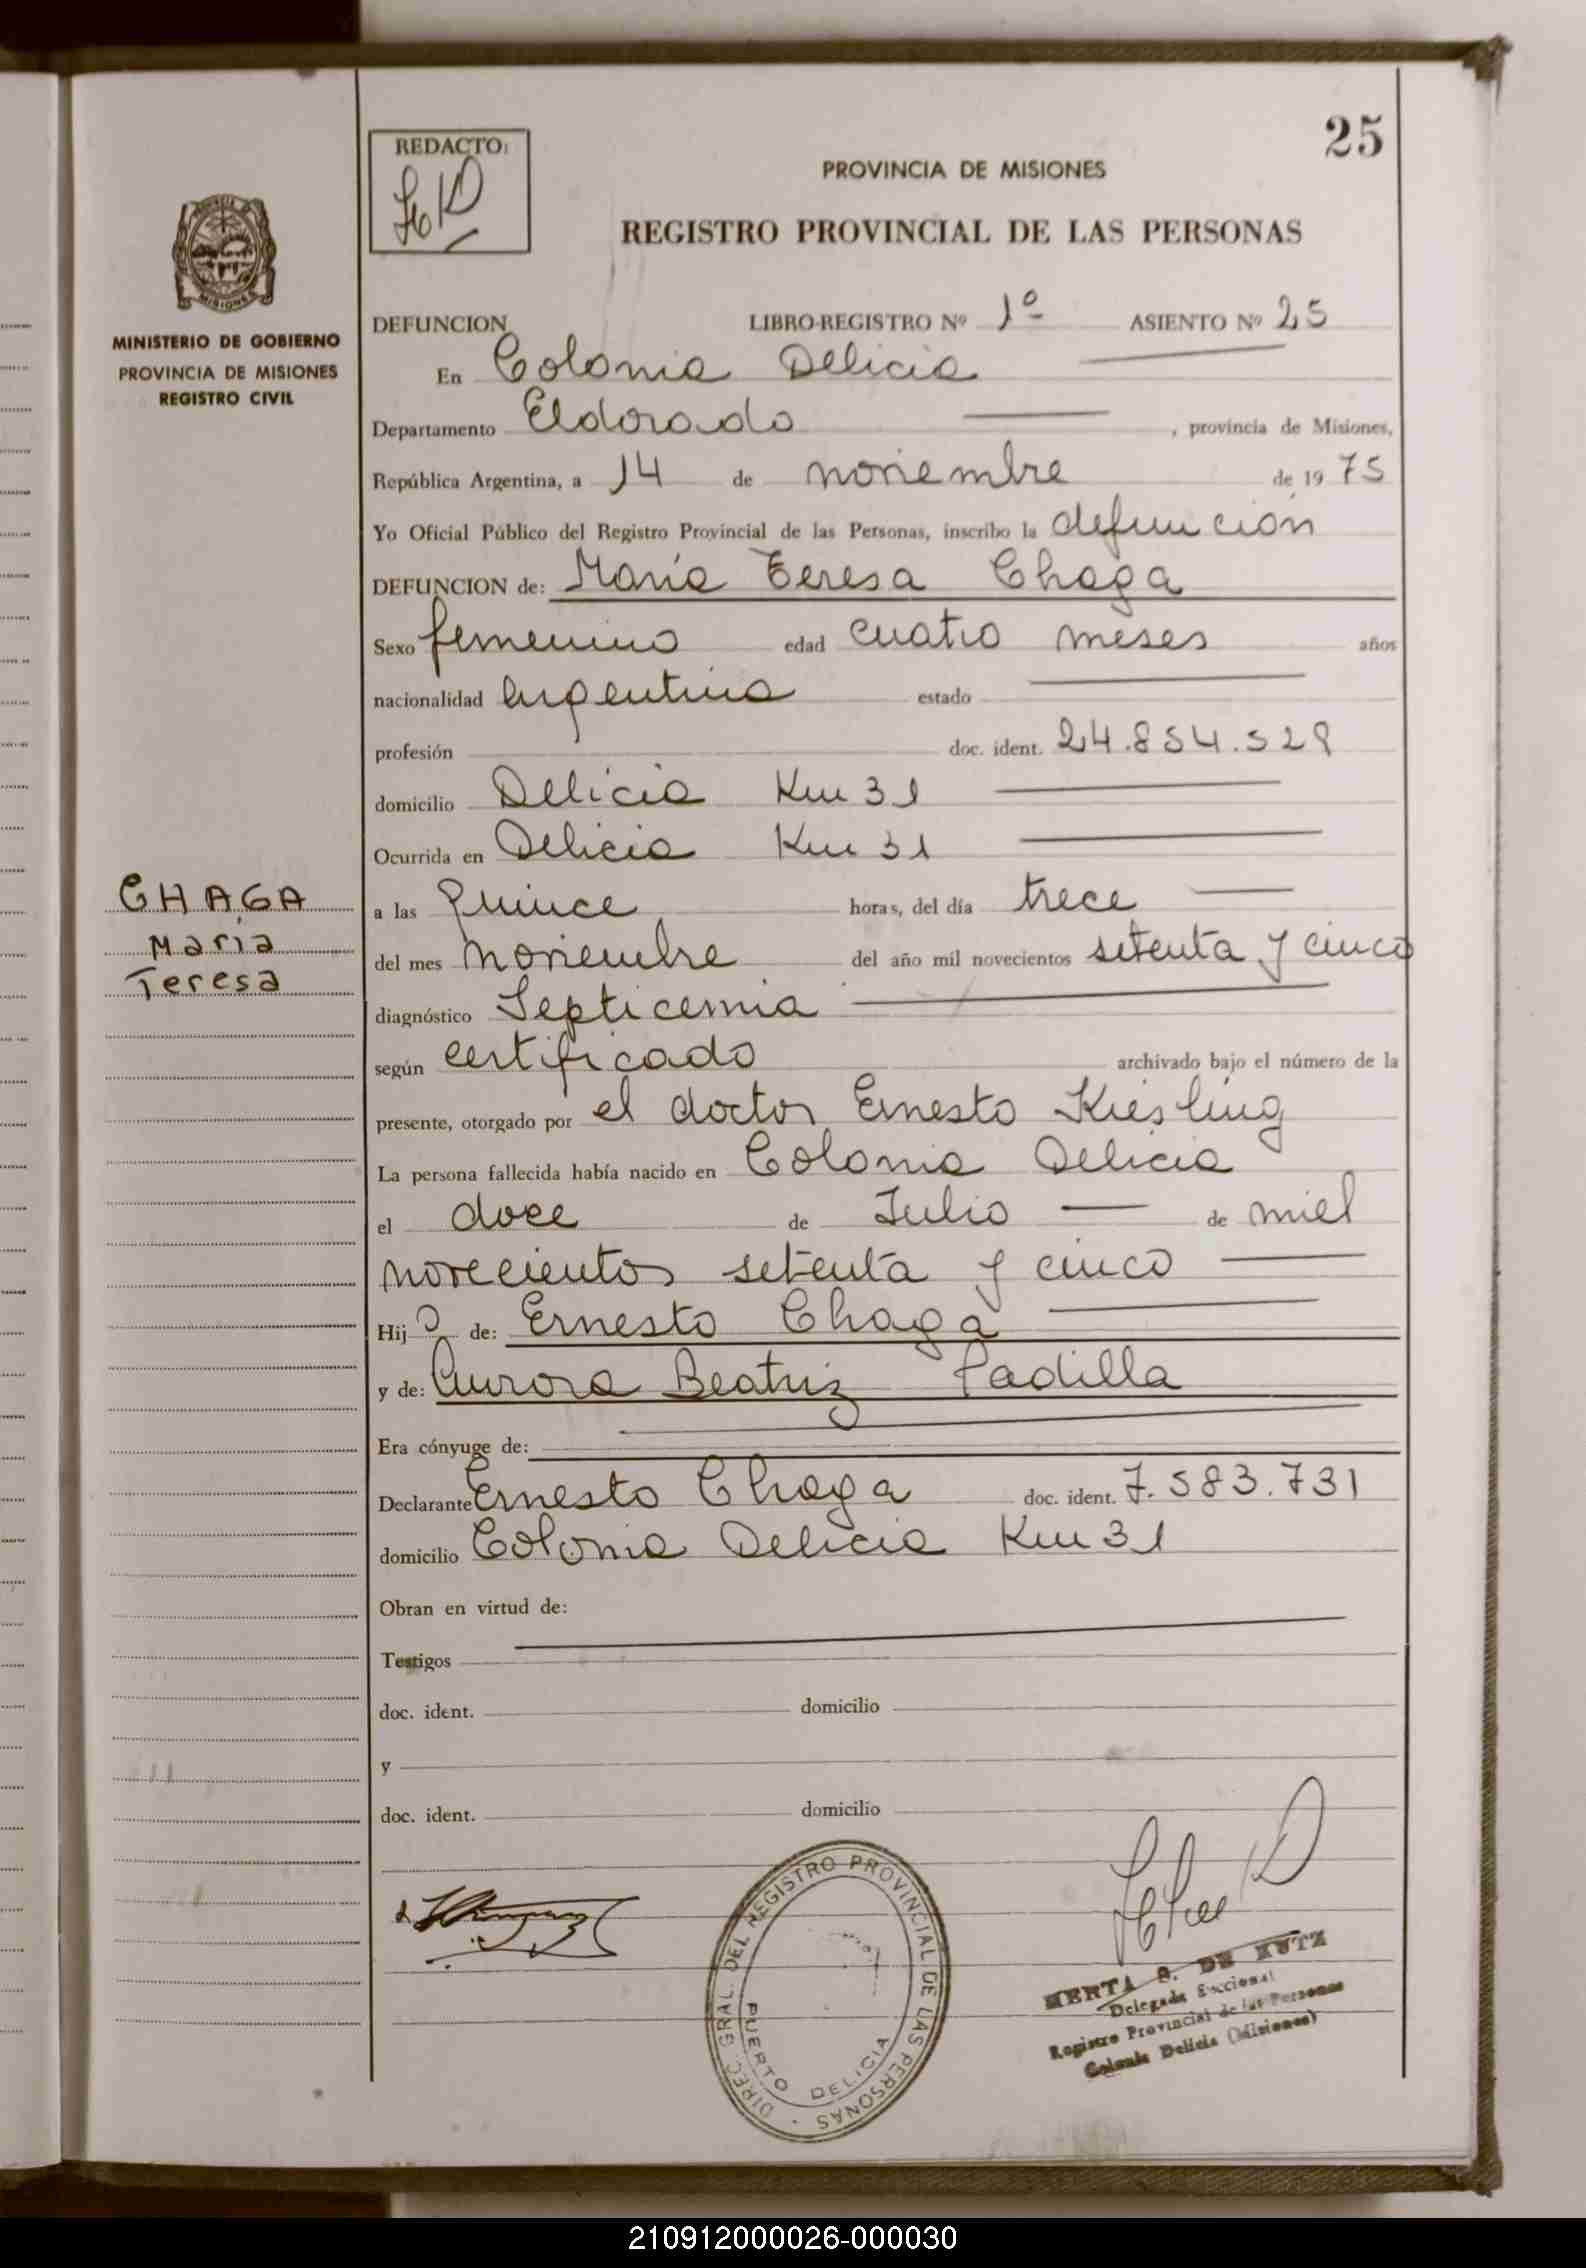 25
REDACTO:
PROVINCIA DE MISIONES
REGISTRO PROVINCIAL DE LAS PERSONAS
MISIONES
MINISTERIO DE GOBIERNO
PROVINCIA DE MISIONES
REGISTRO CIVIL
DEFUNCION LIBRO-REGISTRO Nº 1º ASIENTO Nº 25
En Colonia Delicia
Departamento Eldorado , provincia de Misiones,
República Argentina, a 14 de noviembre de 1975
Yo Oficial Público del Registro Provincial de las Personas, inscribo la defunción
DEFUNCION de: María Teresa Chaga
Sexo femenino edad cuatro meses años
nacionalidad argentina estado
profesión doc. ident. 24.854.529
domicilio Delicia Km 31
Ocurrida en Delicia Km 31
CHAGA
María
Teresa
a las quince horas, del día trece
del mes noviembre del año mil novecientos setenta y cinco
diagnóstico Septicemia
según certificado archivado bajo el número de la
presente, otorgado por el doctor Ernesto Kiesling
La persona fallecida había nacido en Colonia Delicia
el doce de Julio de miel
novecientos setenta y cinco
Hij de: Ernesto Chaga
y de: Aurora Beatriz Padilla
Era cónyuge de:
Declarante Ernesto Chaga doc. ident. 7.583.731
domicilio Colonia Delicia Km 31
Obran en virtud de:
Testigos
doc. ident. domicilio
y
doc. ident. domicilio
DIREC. GRAL. DEL REGISTRO PROVINCIAL DE LAS PERSONAS
PUERTO DELICIA
HERTA S. DE KUTZ
Delegada Seccional
Registro Provincial de las Personas
Colonia Delicia (Misiones)
210912000026-000030